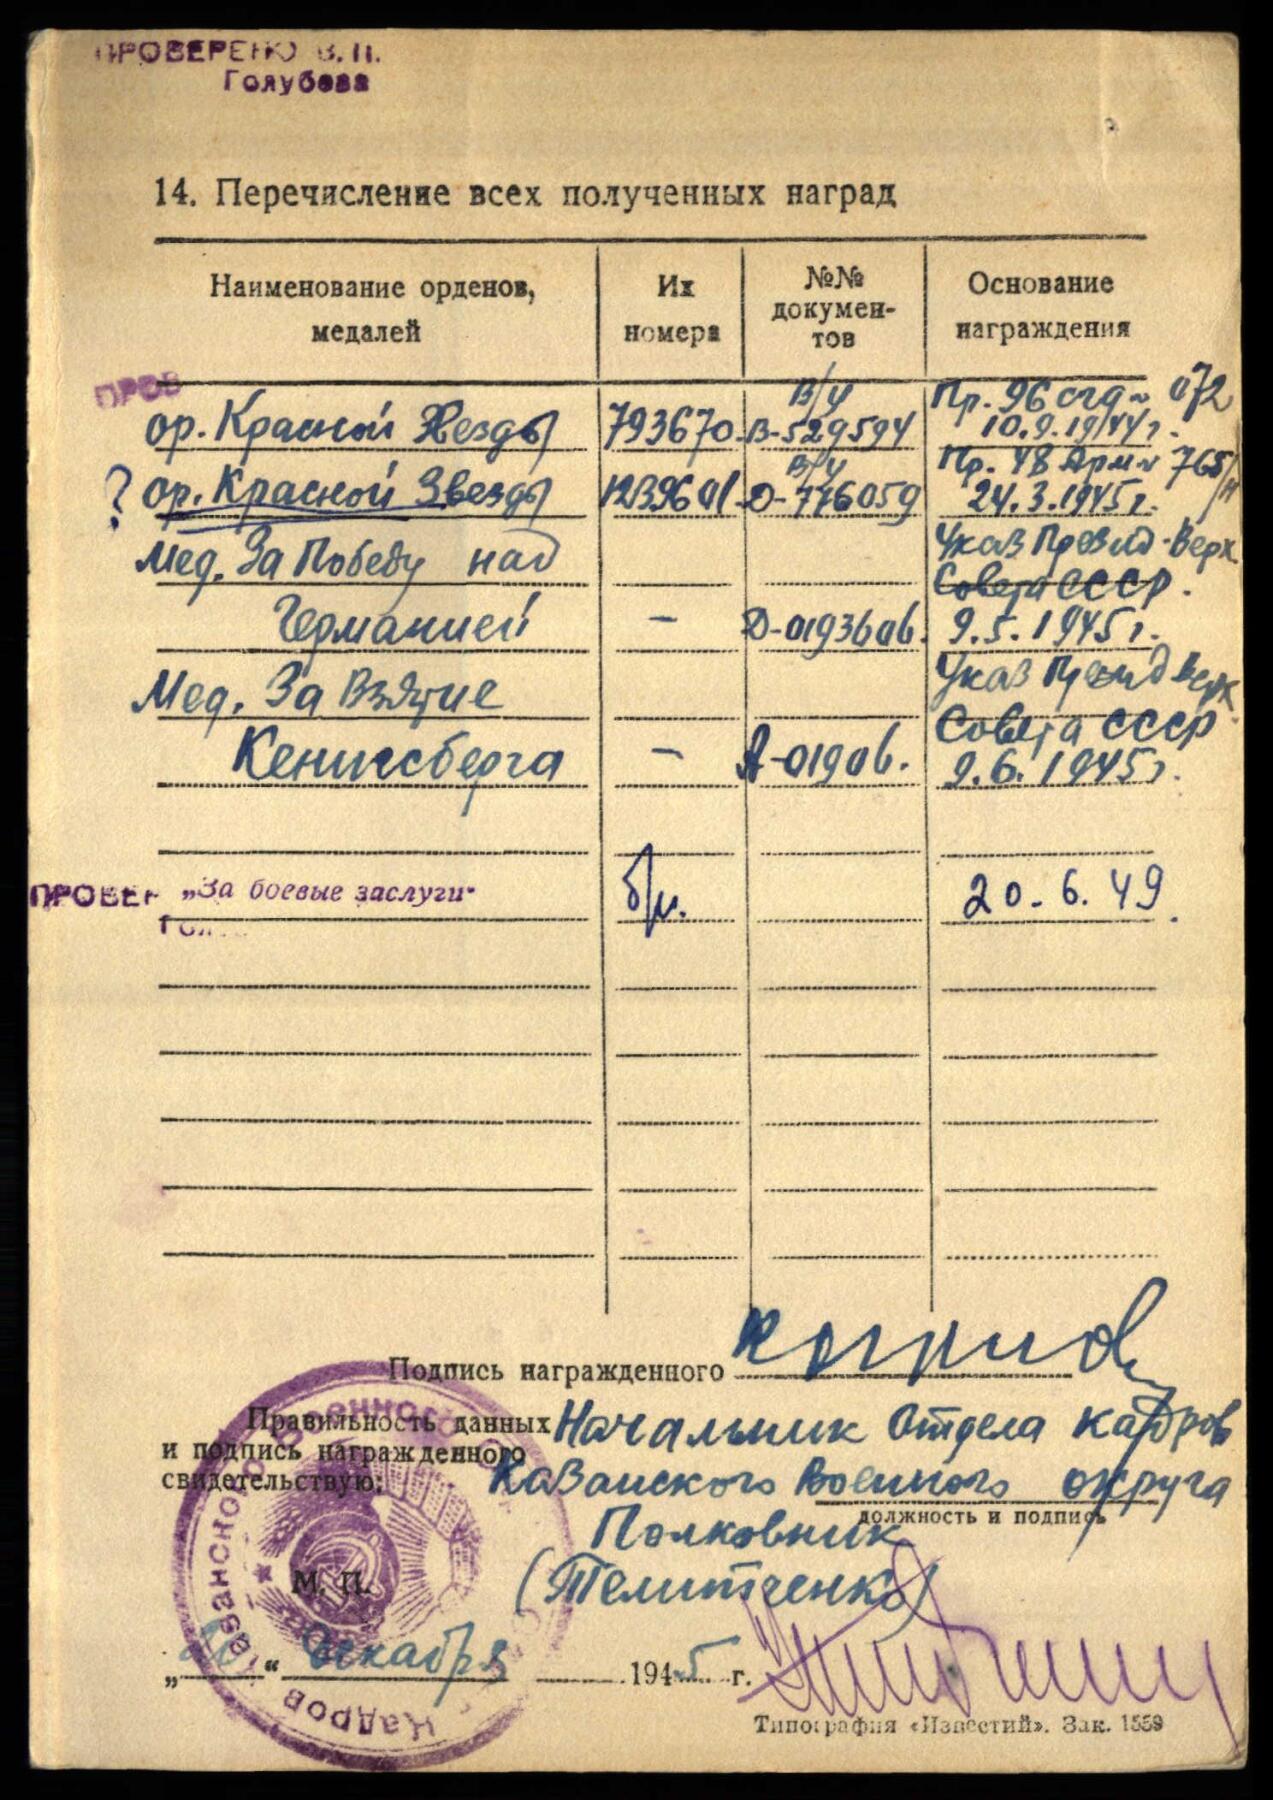 ПРОВЕРЕНО В. П.
Голубева
14. Перечисление всех полученных наград
Наименование орденов, медалей
Их номера
№№ документов
Основание награждения
ПРОВ
ор. Красной Звезды 793670. В/Ч В-529594 Пр. 96 сгд № 072 10.9.1944 г.
? ор. Красной Звезды 1239601. В/Ч Д-776059 Пр. 48 Арм № 765/н 24.3.1945 г.
Мед. За Победу над Указ Презид. Верх.
Совета СССР.
Германией – Д-0193606. 9.5.1945 г.
Мед. За Взятие Указ Презид Верх.
Совета СССР
Кенигсберга – А-01906. 9.6.1945 г.
ПРОВЕР „За боевые заслуги" б/н. 20.6.49.
Подпись награжденного
Правильность данных Начальник Отдела Кадров
и подпись награжденного
свидетельствую: Казанского Военного округа
должность и подпись
Полковник
М. П. (Телитченко)
„ “ декабря 1945 г.
Казанского Военного
Кадров
Типография «Известий». Зак. 1559